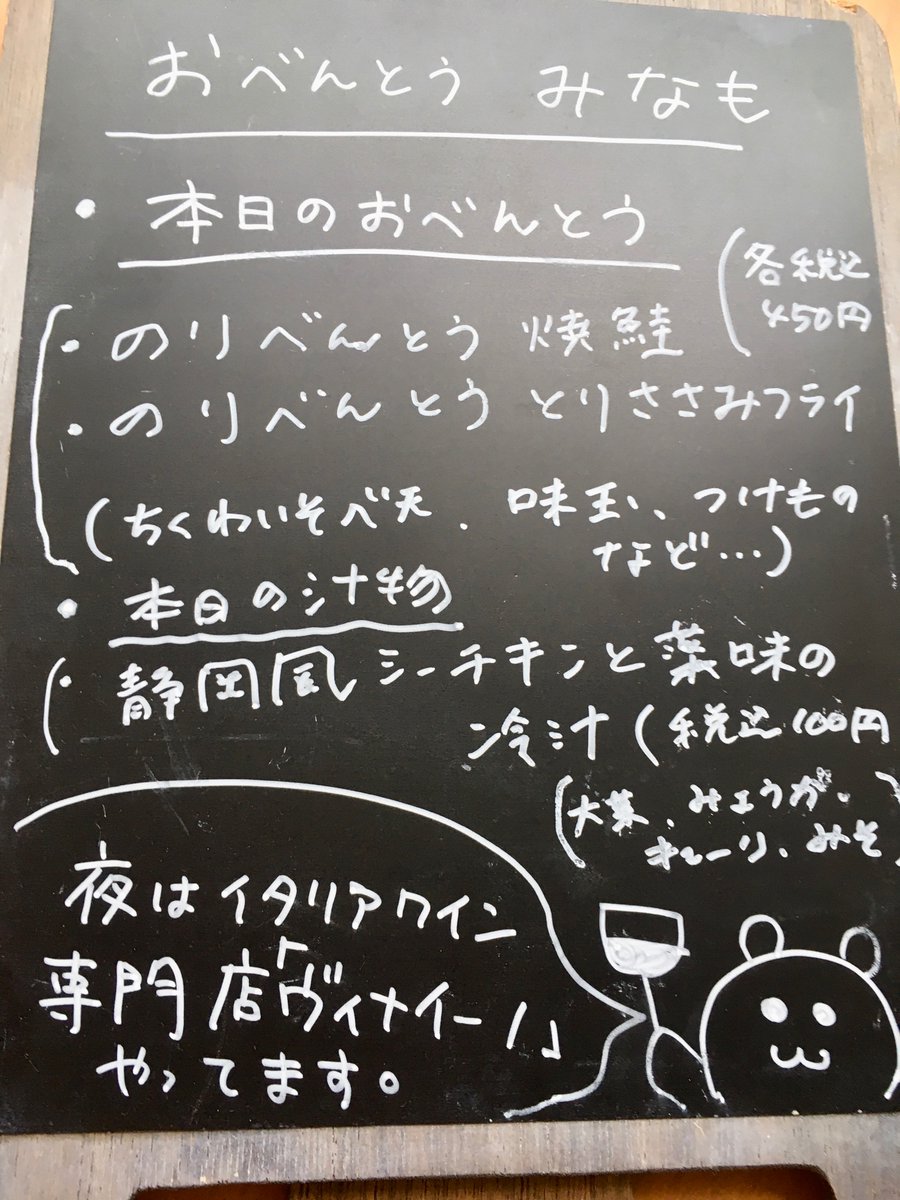 おべんとう みなも
・本日のおべんとう
(各税込
450円
・のりべんとう 焼鮭
・のりべんとう とりささみフライ
(ちくわいそべ天、味玉、つけもの
など…)
・本日の汁物
・静岡風シーチキンと薬味の
冷汁(税込100円
(大葉、みょうが、
きゅーり、みそ)
夜はイタリアワイン
専門店「ヴィナイーノ」
やってます。